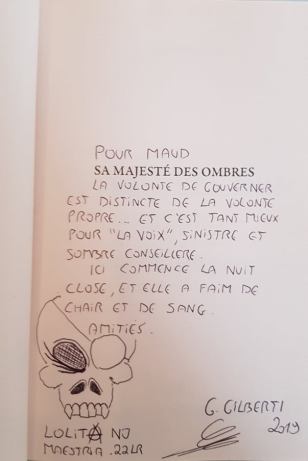 POUR MAUD
SA MAJESTÉ DES OMBRES
LA VOLONTE DE GOUVERNER
EST DISTINCTE DE LA VOLONTE
PROPRE... ET C'EST TANT MIEUX
POUR "LA VOIX", SINISTRE ET
SOMBRE CONSEILLERE.
ICI COMMENCE LA NUIT
CLOSE, ET ELLE A FAIM DE
CHAIR ET DE SANG.
AMITIES.
G. GILBERTI
2019
LOLITA NJ
MAESTRIA .22LR